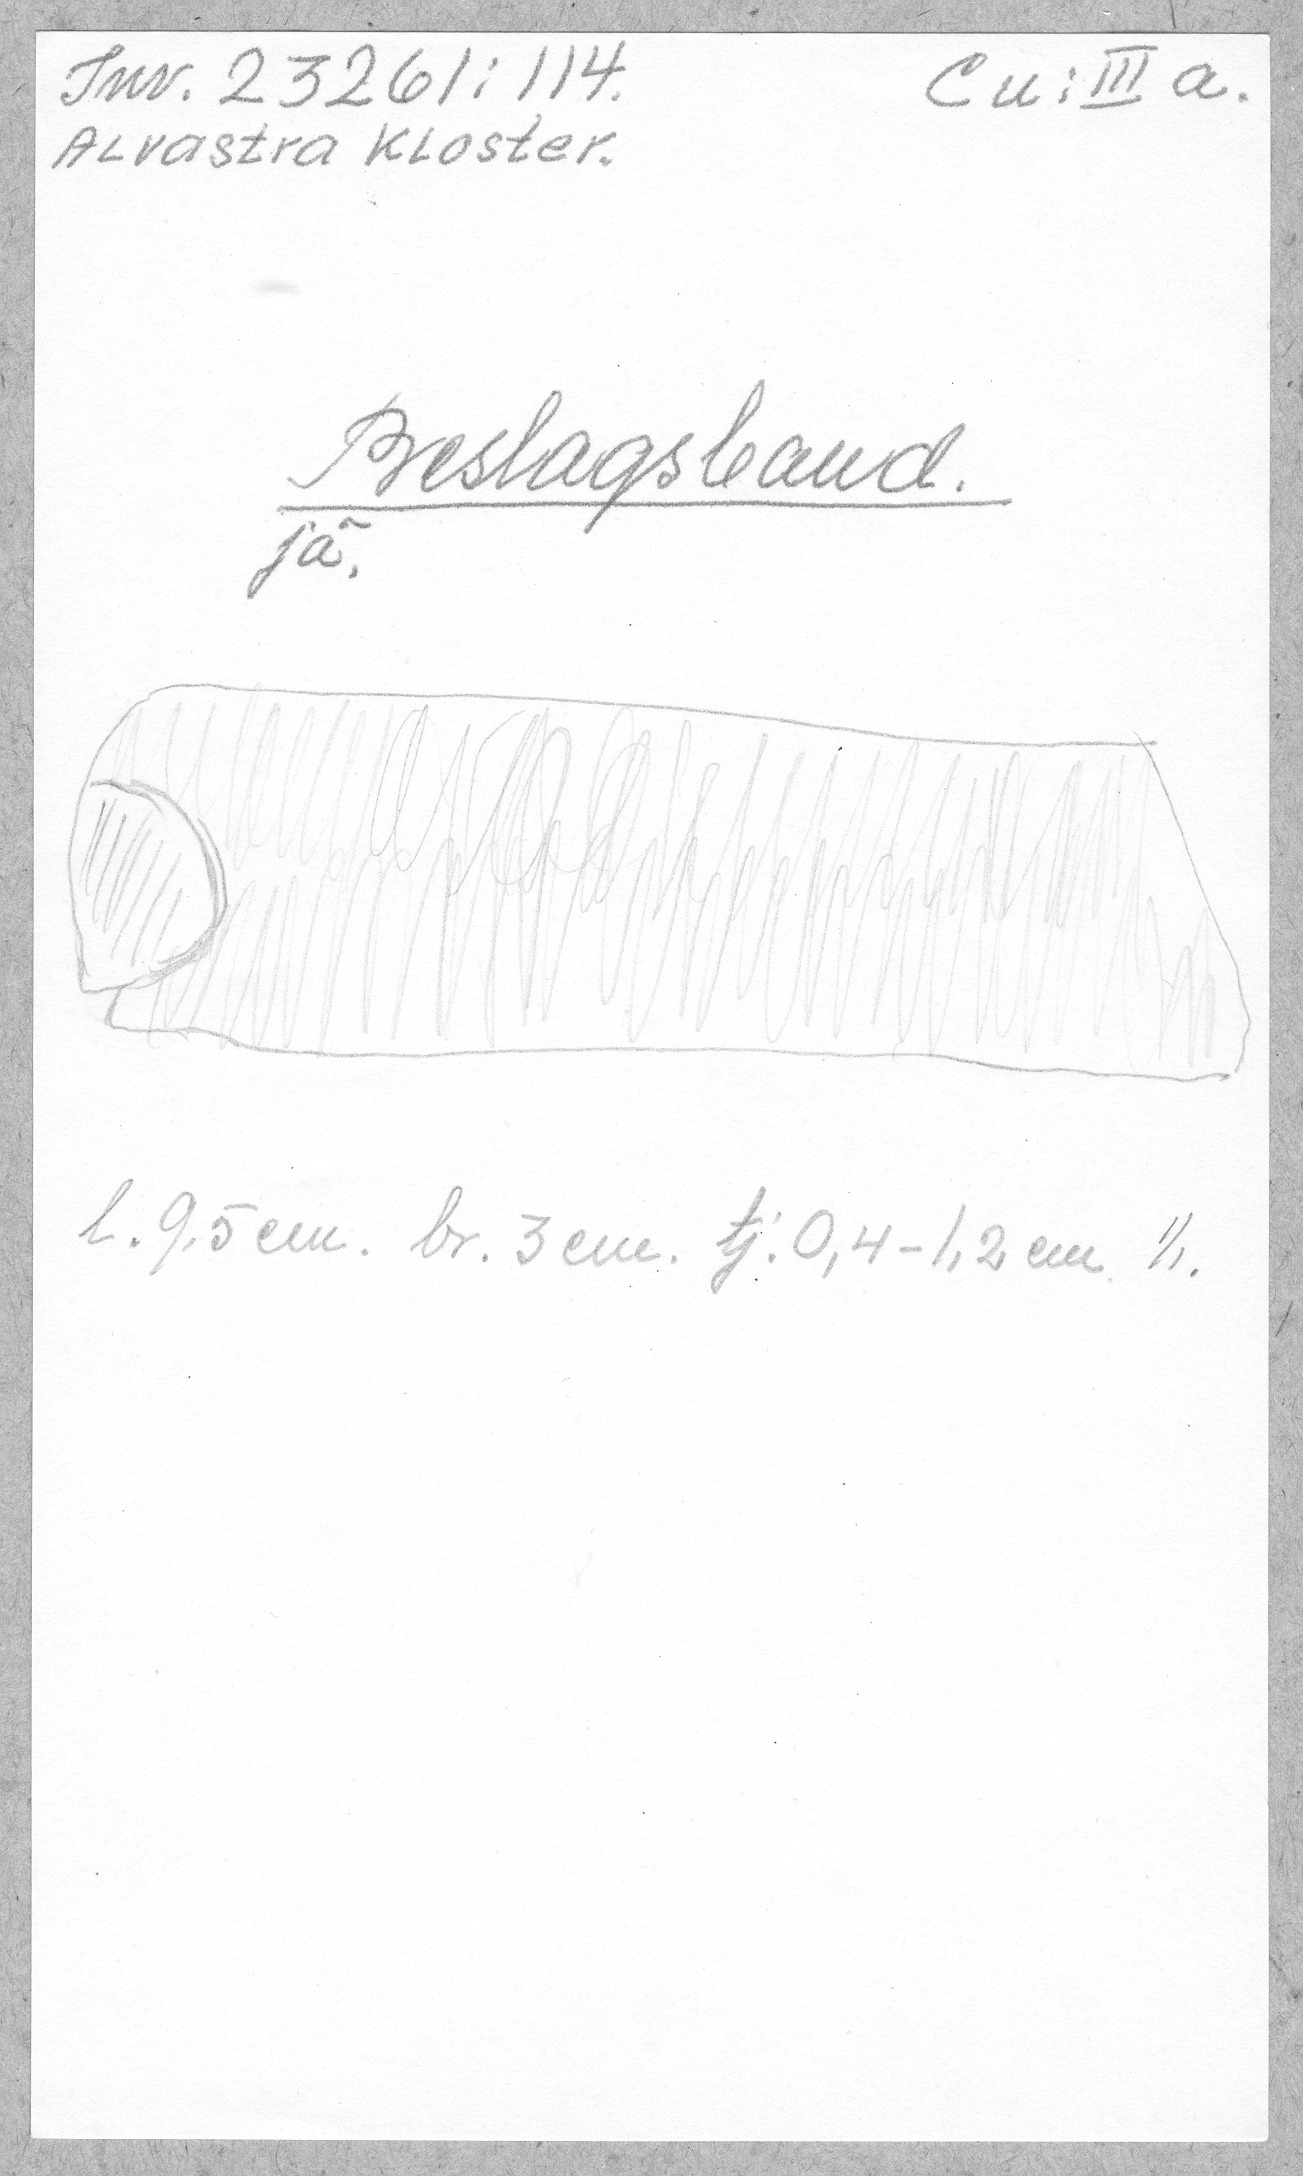 Inv. 23261: 114. Cu: III a.
Alvastra Kloster.
Beslagsband.
jä.
l. 9,5 cm. br. 3 cm. tj. 0,4-1,2 cm 1/1.